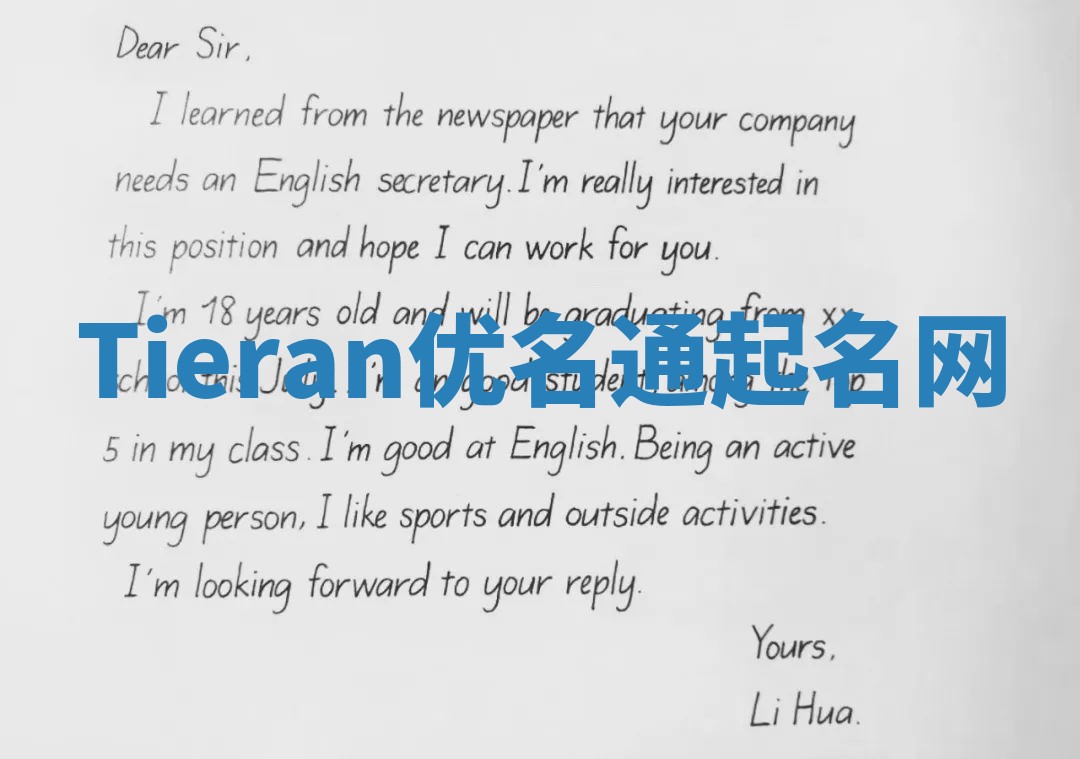 Dear Sir,
I learned from the newspaper that your company
needs an English secretary. I'm really interested in
this position and hope I can work for you.
I'm 18 years old and will be graduating from xx
Tieran优名通起名网
school this July. I'm an good student, among the Top
5 in my class. I'm good at English. Being an active
young person, I like sports and outside activities.
I'm looking forward to your reply.
Yours,
Li Hua.